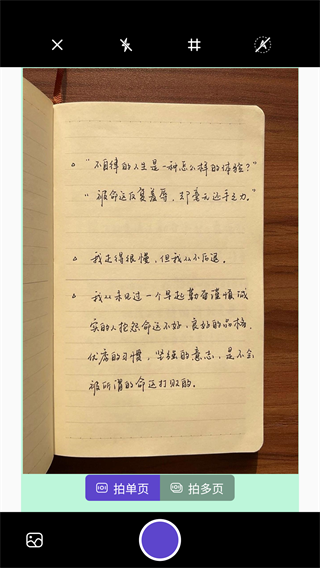 。“不自律的人生是一种怎么样的体验？”
“被命运反复羞辱，却毫无还手之力。”
。我走得很慢，但我从不后退。
。我从未见过一个早起勤奋谨慎诚
实的人抱怨命运不好，良好的品格，
优秀的习惯，坚强的意志，是不会
被所谓的命运打败的。
拍单页
拍多页